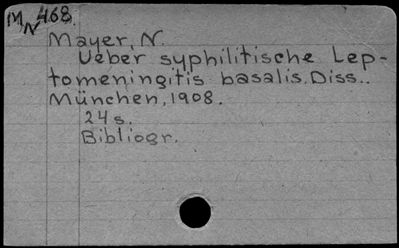 M 468.
N
Mayer, N.
Ueber syphilitische Lep-
tomeningitis basalis. Diss..
München, 1908.
24 s.
Bibliogr.